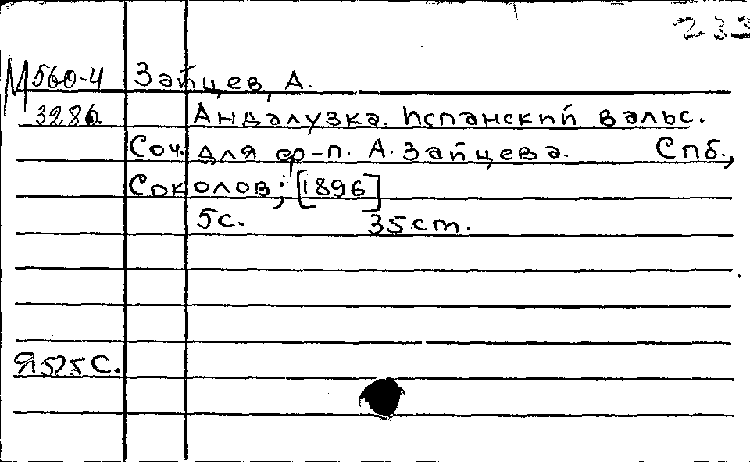 233
М 560-4 Зайцев, А.
328б Андалузка. Испанский вальс.
Соч. для ф-п. А. Зайцева. Спб.,
Соколов; [1896]
5с. 35 ст.
Я525С.